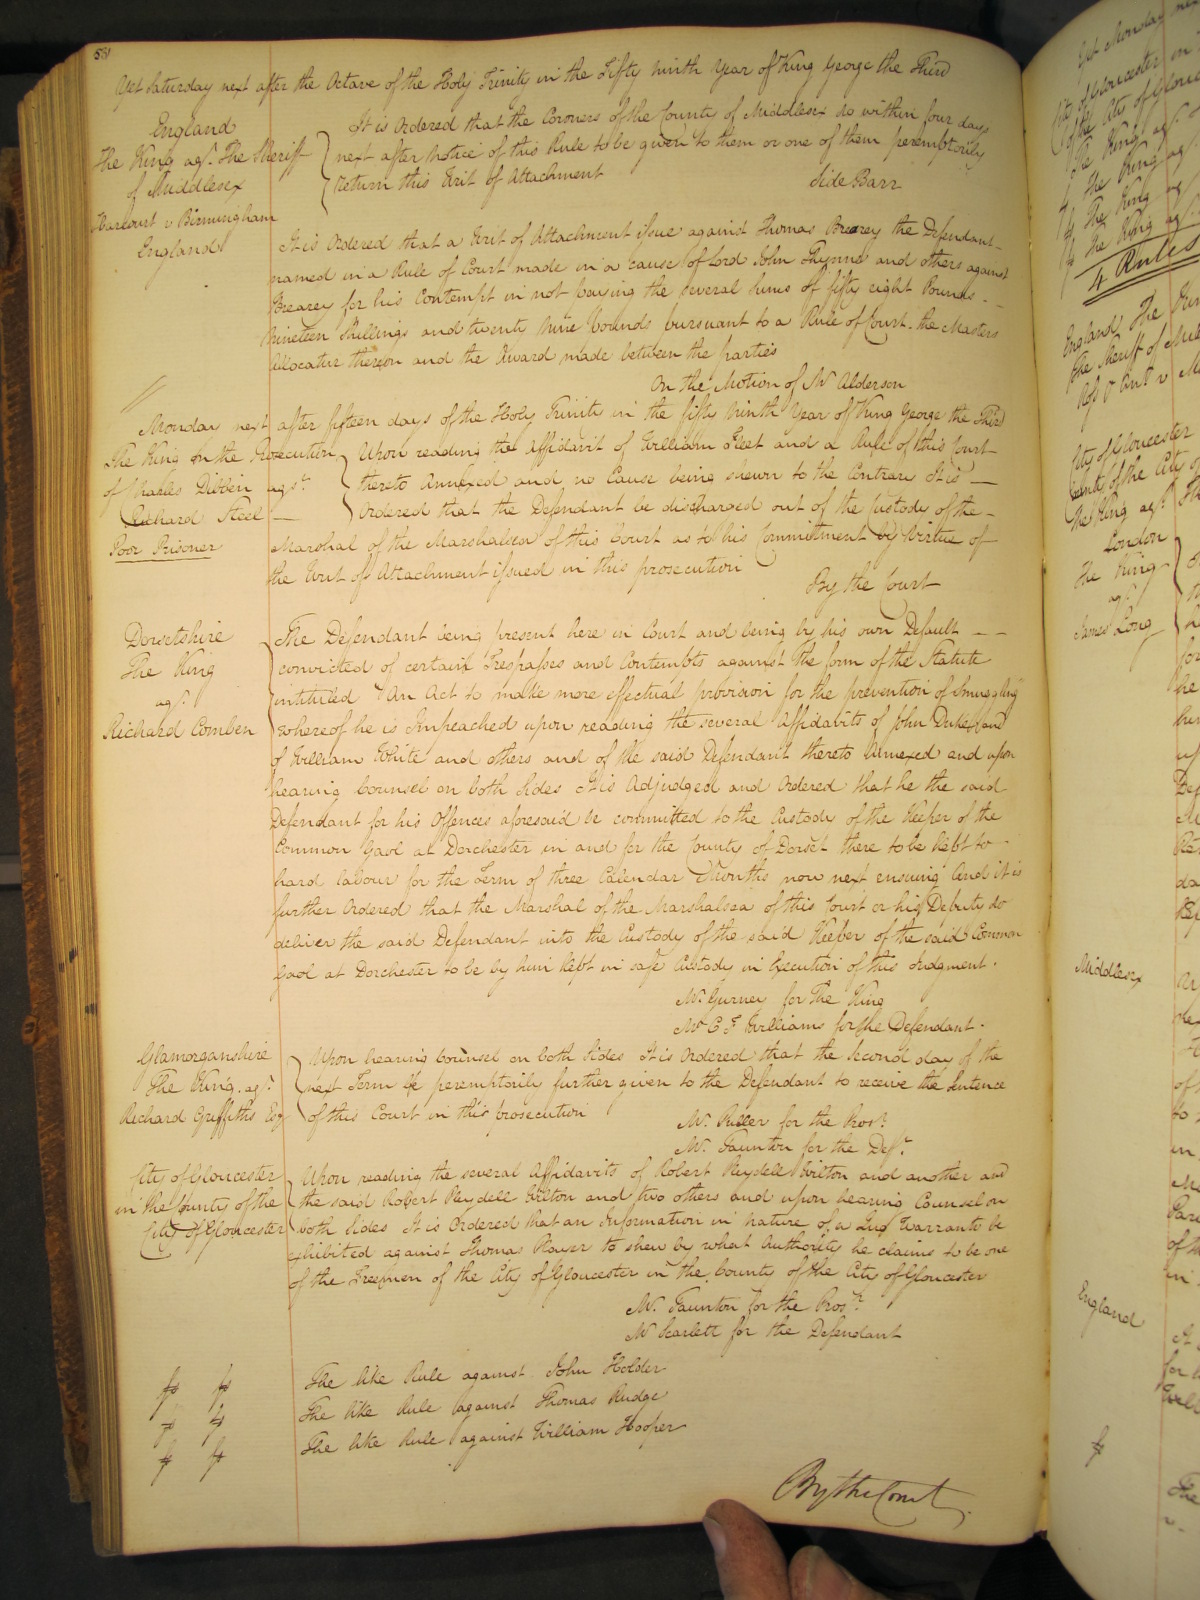 531
Yet Saturday next after the Octave of the Holy Trinity in the Fifty Ninth Year of King George the Third
England
The King agt. The Sheriff
of Middlesex
Harcourt v Birmingham
It is Ordered that the Coroners of the County of Middlesex do within four days
next after Notice of this Rule to be given to them or one of them peremptorily
Return this Writ of Attachment
Side Barr
England
It is Ordered that a Writ of Attachment issue against Thomas Brearey the Defendant
named in a Rule of Court made in a cause of Lord John Thynne and others against
Brearey for his Contempt in not paying the several Sums of fifty eight Pounds
Nineteen Shillings and twenty Nine Pounds pursuant to a Rule of Court. the Masters
Allocatur thereon and the Award made between the parties
On the Motion of Mr Alderson
Monday next after fifteen days of the Holy Trinity in the fifty Ninth Year of King George the Third
The King on the Prosecution
of Charles Dibben agst.
Richard Steel
Poor Prisoner
Upon reading the Affidavit of William Fleet and a Rule of this Court
thereto Annexed and no Cause being shewn to the Contrary It is
Ordered that the Defendant be discharged out of the Custody of the
Marshal of the Marshalsea of this Court as to his Commitment by Virtue of
the Writ of Attachment issued in this prosecution
By the Court
Dorsetshire
The King
agt.
Richard Comben
The Defendant being present here in Court and being by his own Default
convicted of certain Trespasses and Contempts against the form of the Statute
intituled An Act to make more effectual provision for the prevention of Smuggling
whereof he is Impeached upon reading the several Affidavits of John Dukes and
of William White and others and of the said Defendant thereto Annexed and upon
hearing Counsel on both Sides It is Adjudged and Ordered that he the said
Defendant for his Offences aforesaid be committed to the Custody of the Keeper of the
Common Gaol at Dorchester in and for the County of Dorset there to be kept to
hard labour for the Term of three Calendar Months now next ensuing And it is
further Ordered that the Marshal of the Marshalsea of this Court or his Deputy do
deliver the said Defendant into the Custody of the said Keeper of the said Common
Gaol at Dorchester to be by him kept in safe Custody in Execution of this Judgment.
Mr. Gurney for The King
Mr C F Williams for the Defendant.
Glamorganshire
The King agt.
Richard Griffiths Esq
Upon hearing Counsel on both Sides It is Ordered that the Second day of the
next Term be peremptorily further given to the Defendant to receive the Sentence
of this Court in this prosecution
Mr. Puller for the Prosr.
Mr. Taunton for the Deft.
City of Gloucester
in the County of the
City of Gloucester
Upon reading the several Affidavits of Robert Pleydell Wilton and another and
the said Robert Pleydell Wilton and two others and upon hearing Counsel on
both Sides It is Ordered that an Information in nature of a Quo Warranto be
exhibited against Thomas Player to shew by what Authority he claims to be one
of the Freemen of the City of Gloucester in the County of the City of Gloucester
Mr. Taunton for the Prosr.
Mr Scarlett for the Defendant
The like Rule against John Holder
The like Rule against Thomas Rudge
The like Rule against William Hooper
By the Court
Yet Monday
The King agt.
The King ag
The King ag
The King ag
4 Rules
England The
The Sheriff of
City of Gloucester
The King agt.
London
The King
agt.
James Long
Middlesex
England